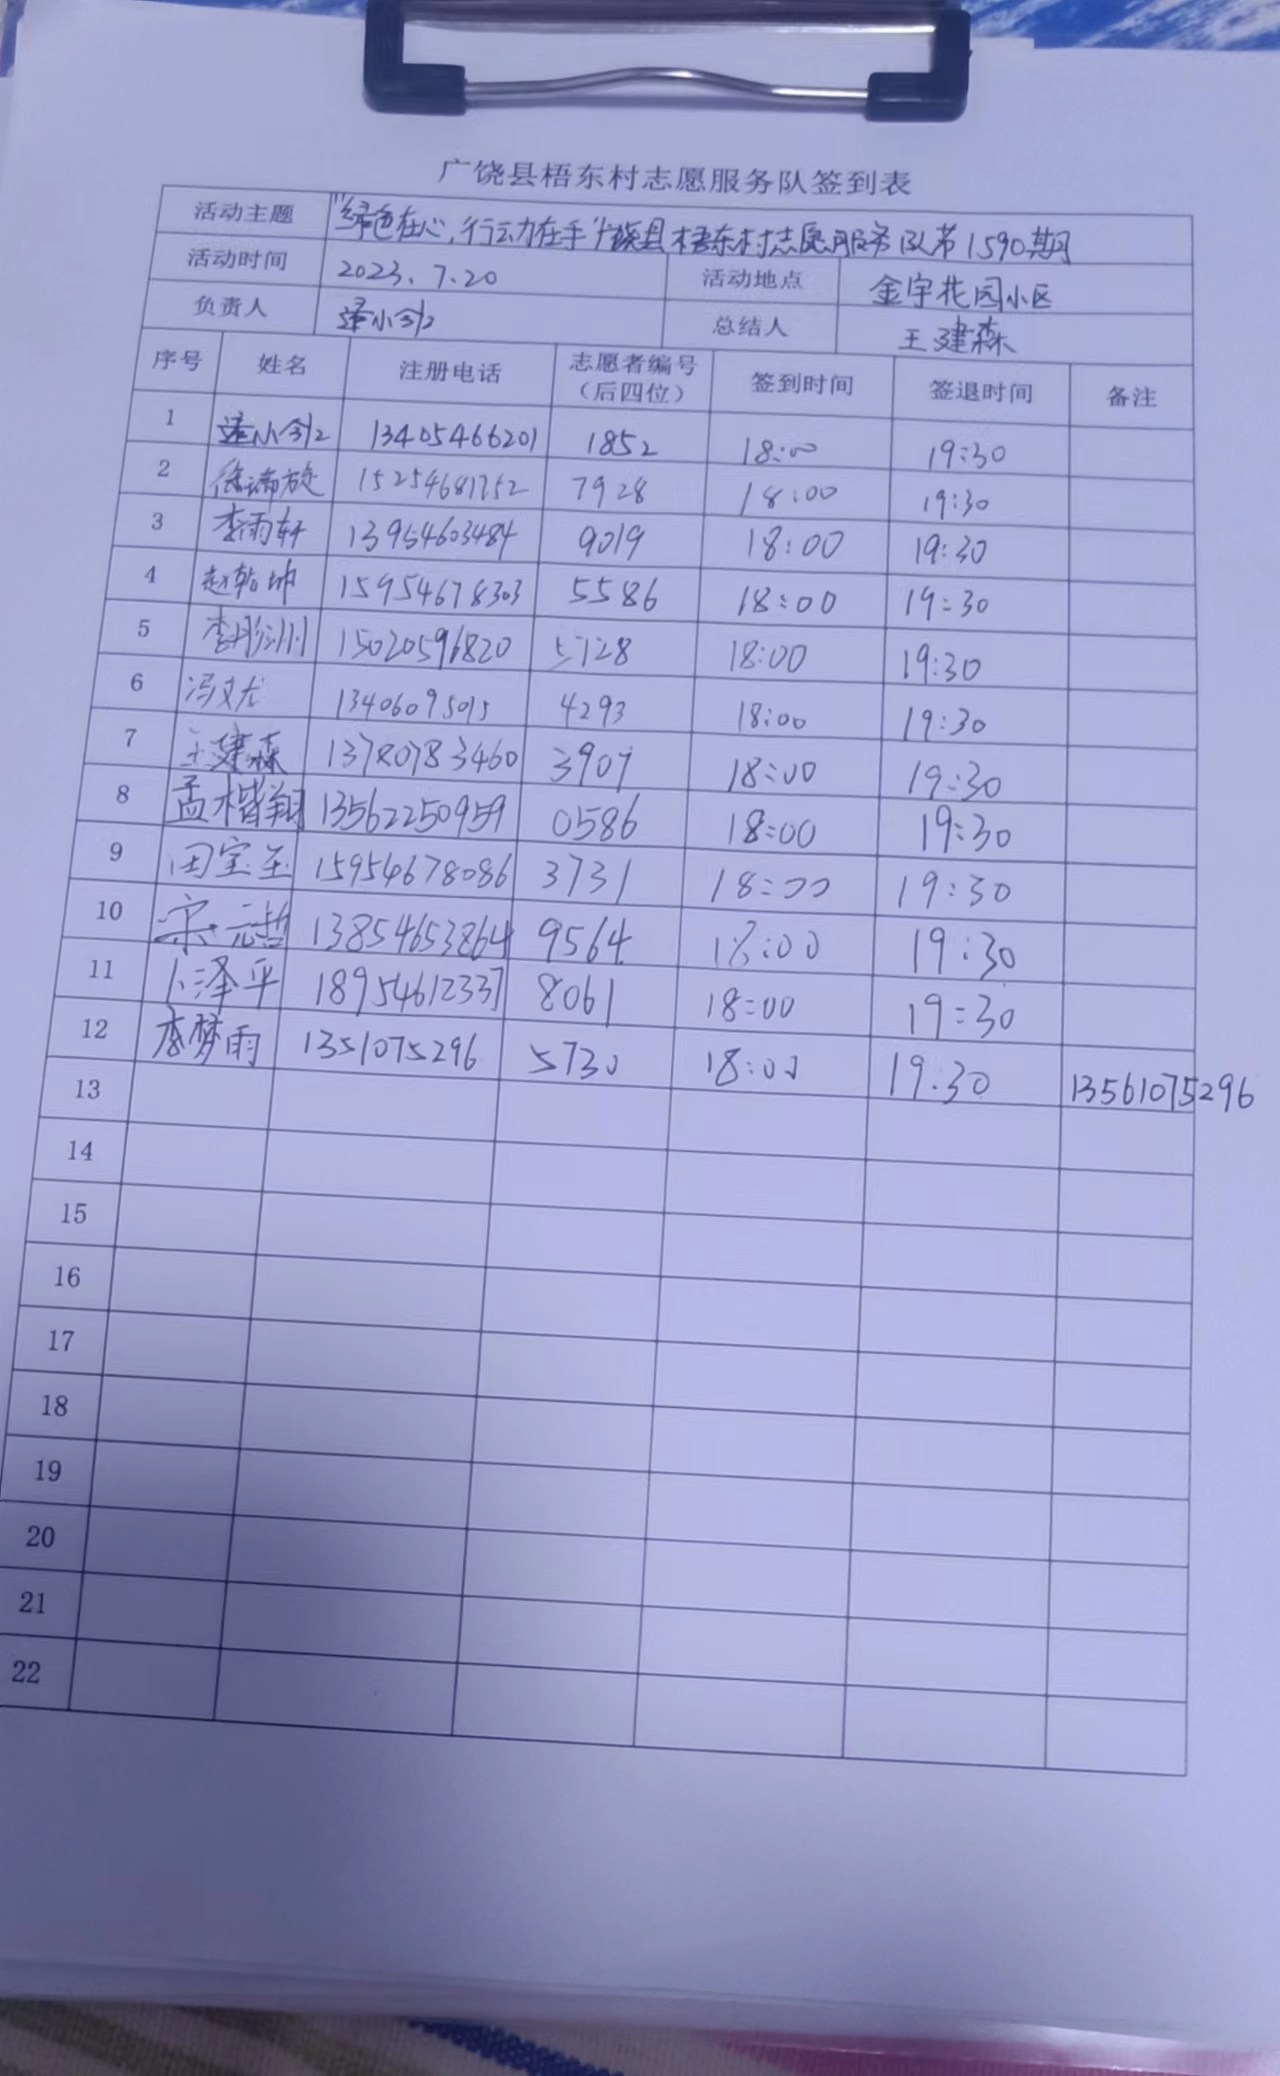 广饶县梧东村志愿服务队签到表
活动主题 "绿色在心,行动在手"广饶县梧东村志愿服务队第1590期
活动时间 2023.7.20 活动地点 金宇花园小区
负责人 逯小钊 总结人 王建森
序号 姓名 注册电话 志愿者编号(后四位) 签到时间 签退时间 备注
1 逯小钊 13405466201 1852 18:00 19:30
2 徐瑞旋 15254681752 7928 18:00 19:30
3 李雨轩 13954603484 9019 18:00 19:30
4 15954678303 5586 18:00 19:30
5 15020596820 5728 18:00 19:30
6 13406095015 4293 18:00 19:30
7 王建森 13780783460 3907 18:00 19:30
8 孟楷翔 13562250959 0586 18:00 19:30
9 田宝玉 15954678086 3731 18:00 19:30
10 宋元哲 13854653864 9564 18:00 19:30
11 卜泽平 18954612337 8061 18:00 19:30
12 李梦雨 1351075296 5730 18:00 19:30 13561075296
13
14
15
16
17
18
19
20
21
22